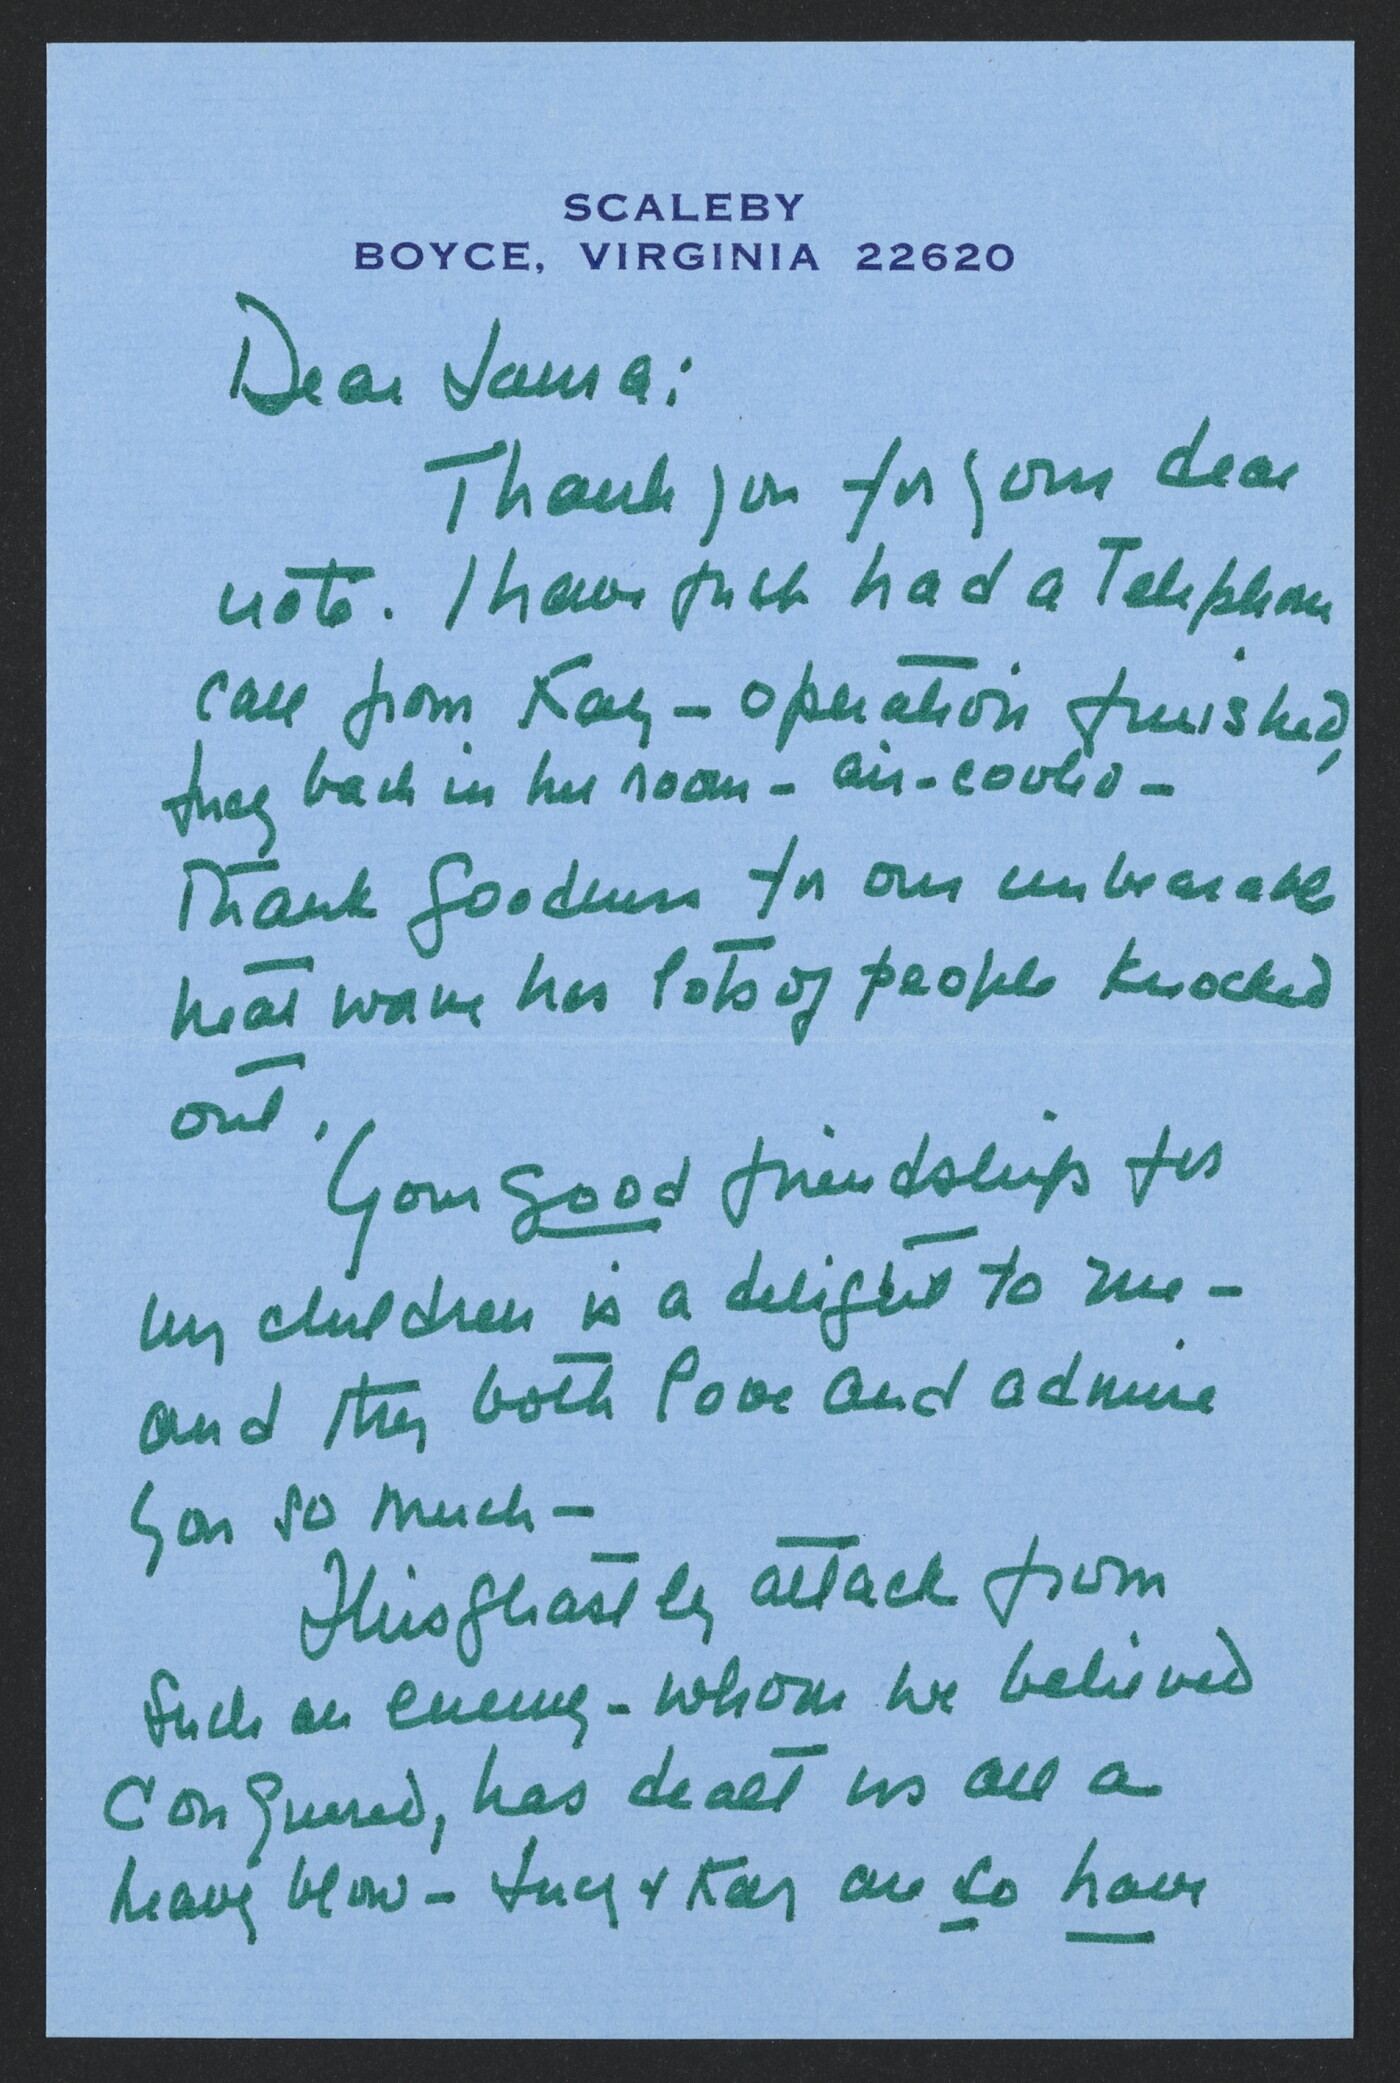 SCALEBY
BOYCE, VIRGINIA 22620
Dear Laura:
Thank you for your dear
note. I have just had a Telephone
call from Kay - operation finished,
Lucy back in her room - air-cooled -
Thank Goodness for our unbearable
heat wave has lots of people knocked
out.
Your good friendship for
my children is a delight to me -
and they both love and admire
you so much -
This ghastly attack from
such an enemy - whom we believed
Conquered, has dealt us all a
heavy blow - Lucy & Kay are so brave